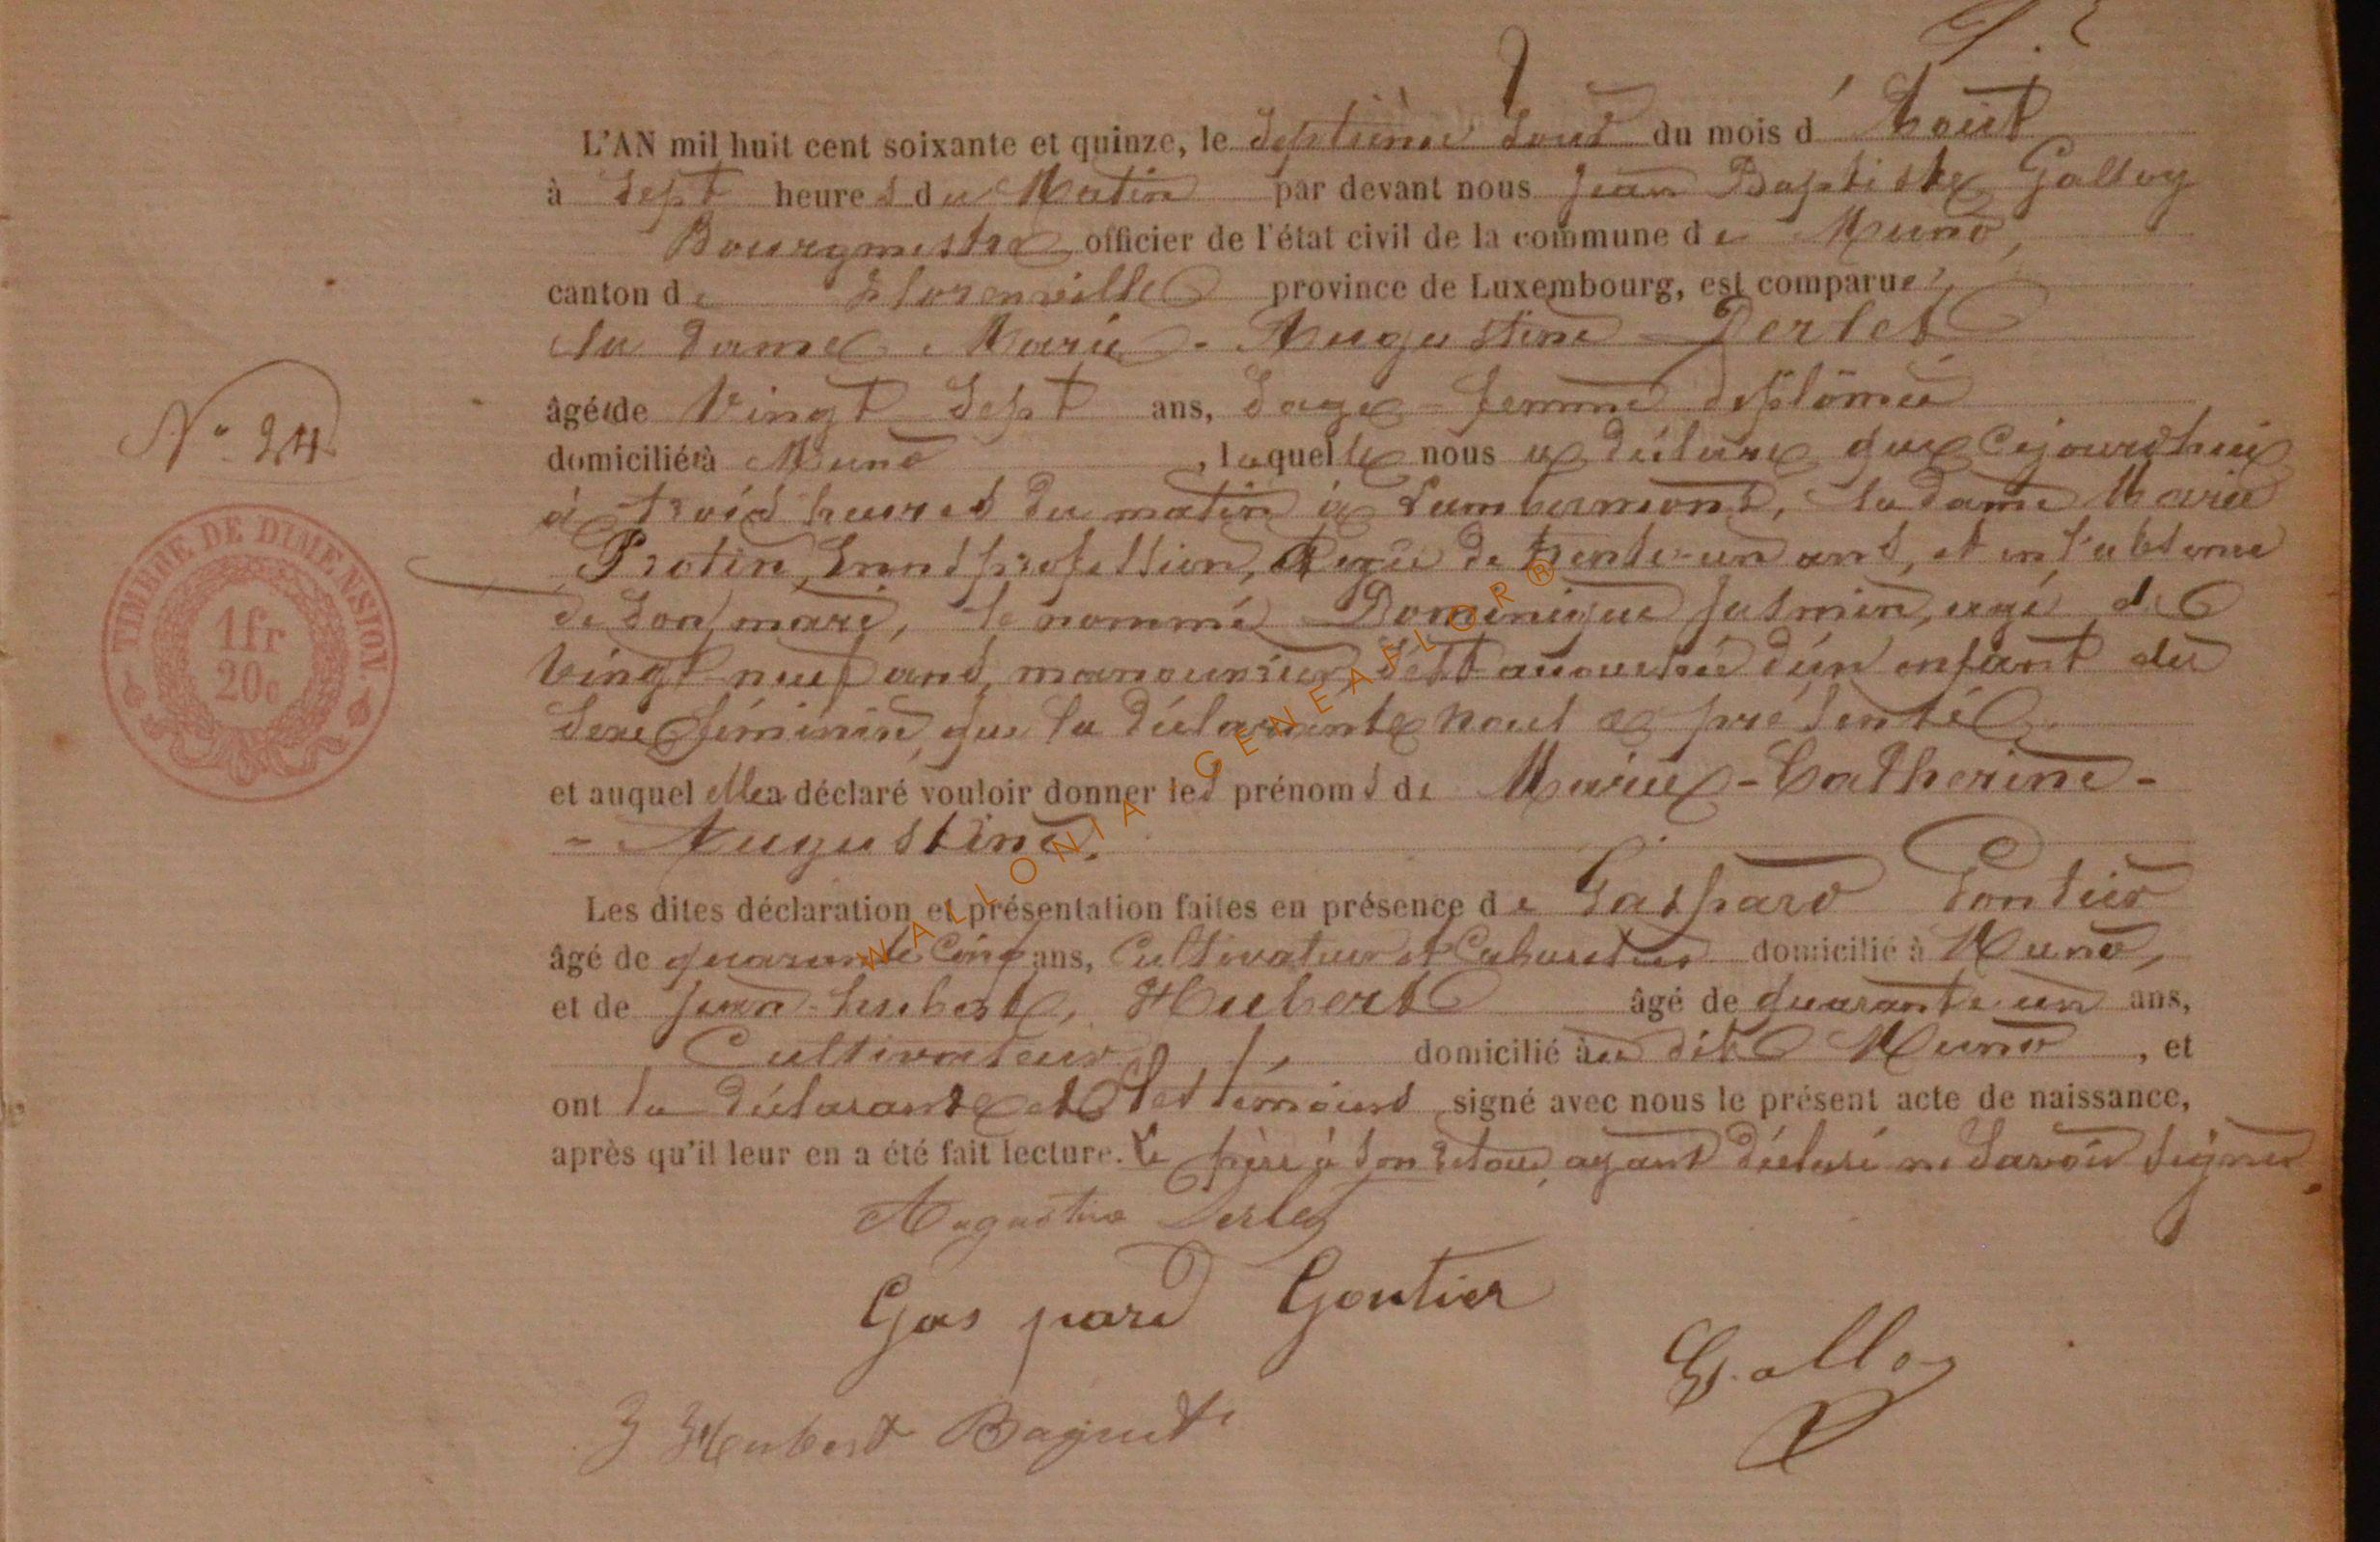 L'AN mil huit cent soixante et quinze, le septième jour du mois d' Août
à sept heures du Matin par devant nous Jean Baptiste Galloy
Bourgmestre officier de l'état civil de la commune de Muno,
canton de Florenville province de Luxembourg, est comparue
la dame Marie - Augustine Perlet
âgée de Vingt sept ans, sage-femme diplômée
domiciliée à Muno, laquelle nous a déclaré que cejourd'hui
N° 24
à trois heures du matin à Lambermont, la dame Marie
Protin, sans profession, âgée de trente-un ans, et en l'absence
de son mari, le nommé Dominique Jasmin, agé de
vingt-neuf ans, manouvrier, s'est accouchée d'un enfant du
sexe féminin, que la déclarante nous a présenté
TIMBRE DE DIMENSION.
1fr
20c
et auquel elle a déclaré vouloir donner les prénoms de Marie-Catherine-
- Augustine.
Les dites déclaration et présentation faites en présence de Gaspard
âgé de quarante cinq ans, Cultivateur et Cabaretier domicilié à Muno,
et de Jean-hubert, Hubert âgé de quarante un ans,
Cultivateur domicilié au dit Muno, et
ont la déclarante et les témoins signé avec nous le présent acte de naissance,
après qu'il leur en a été fait lecture. Le père à son retour, ayant déclaré ne savoir signer.
Augustine Perlet
Gas pard Gontier
Galloy
J Hubert
WALLONIA GENEAFLOR®